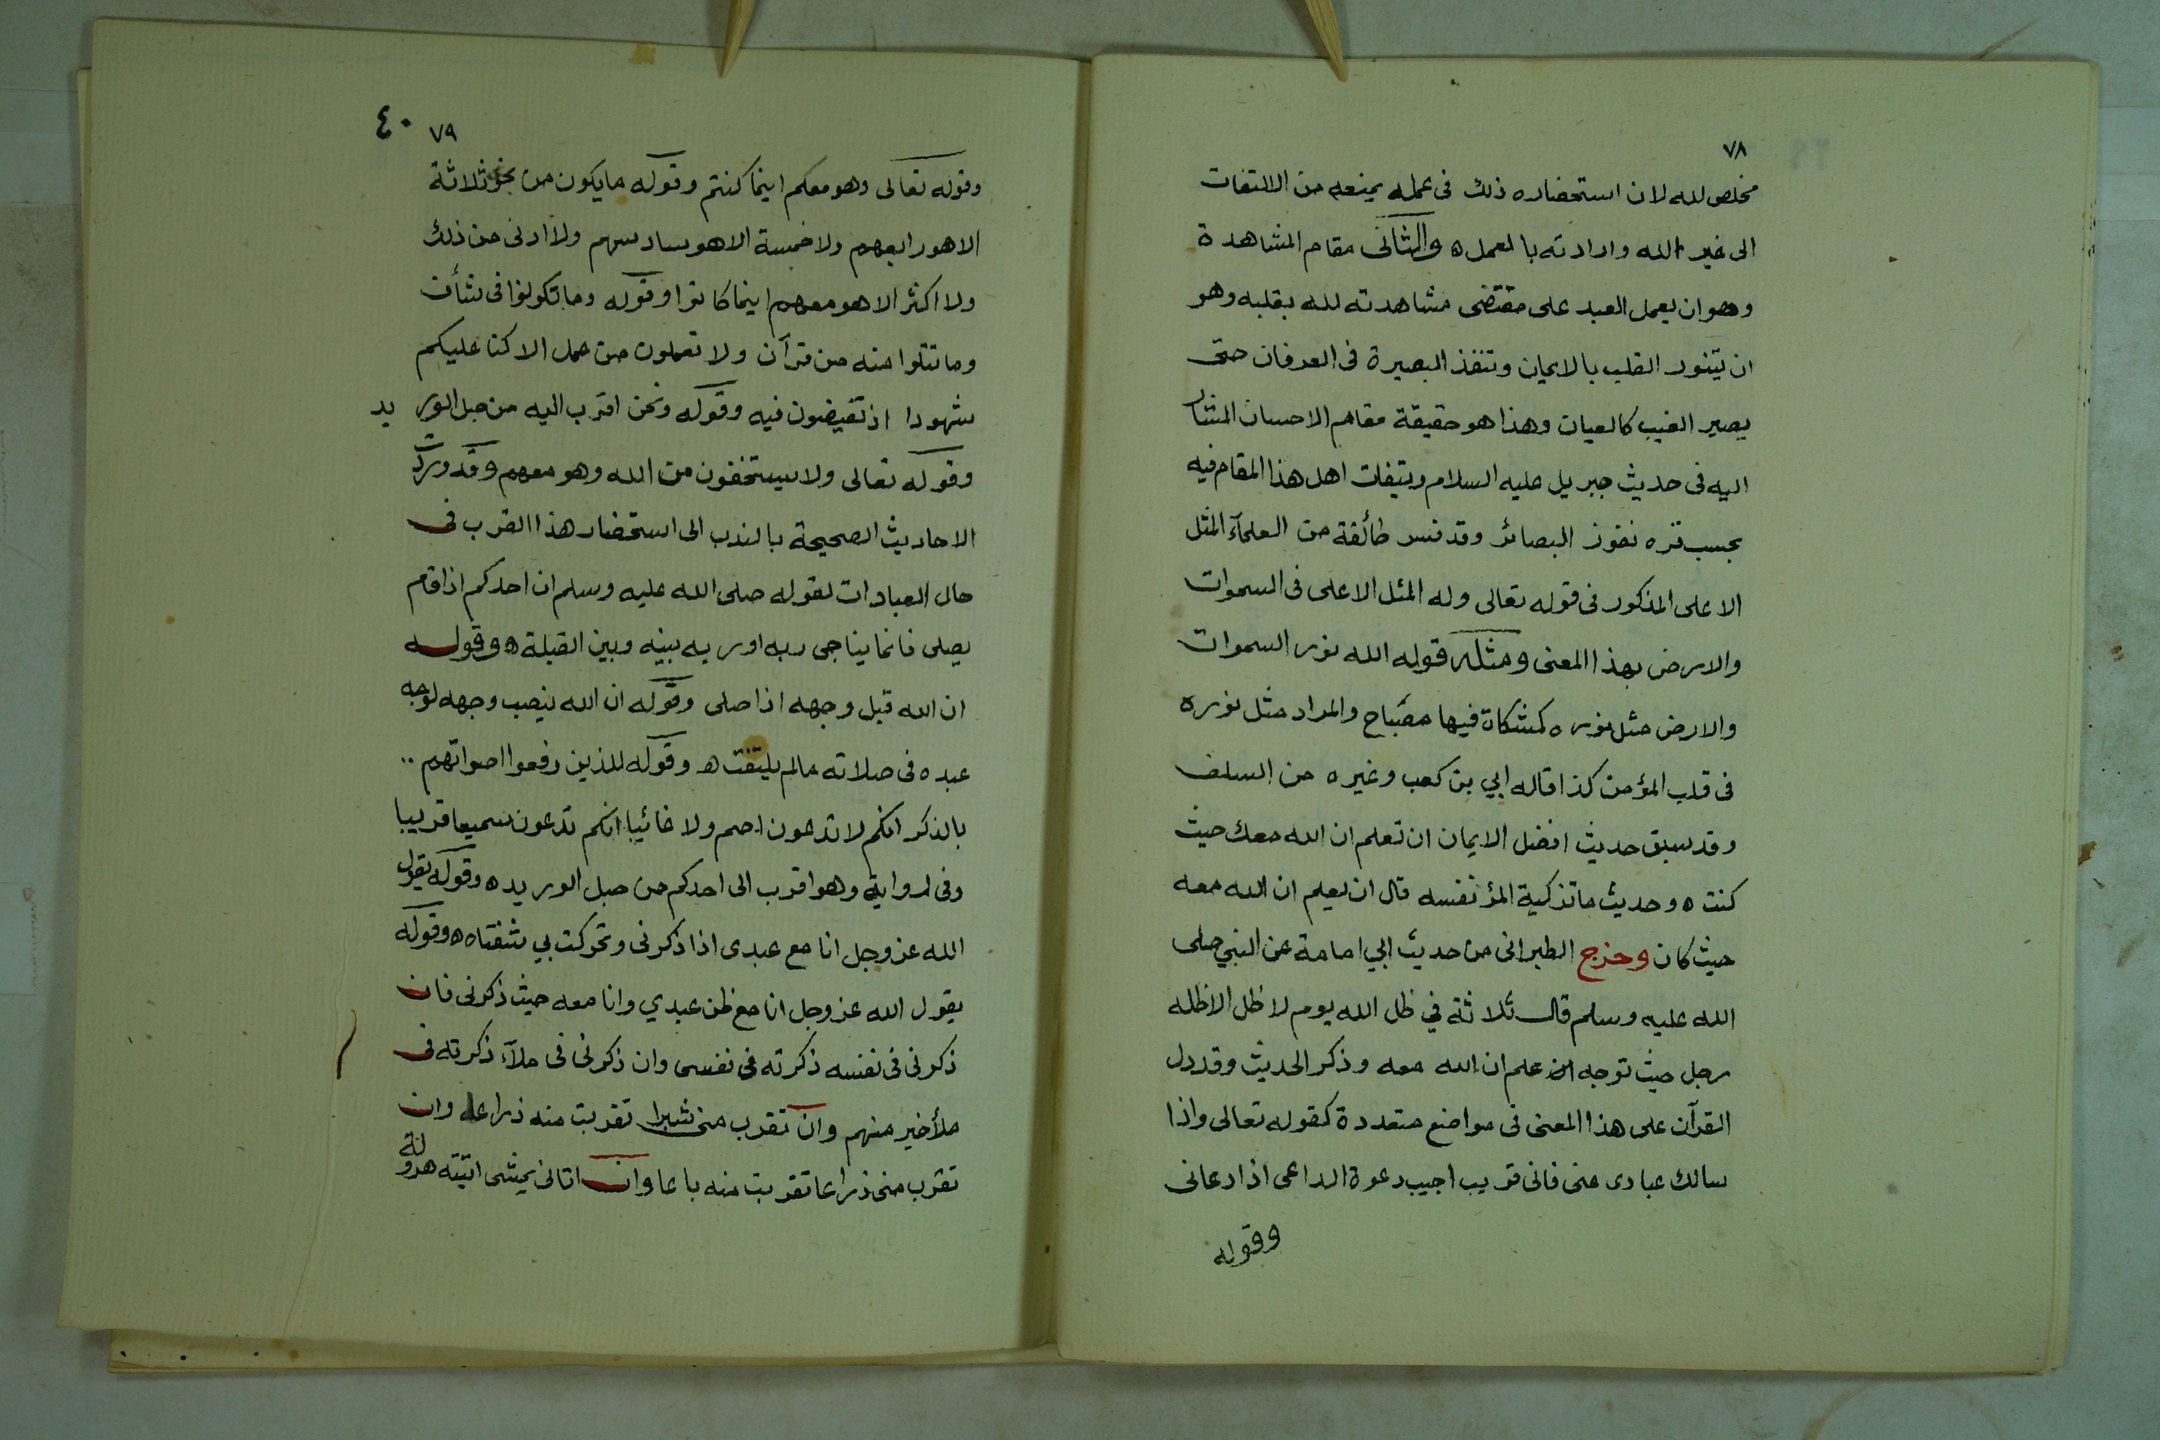 ٧٨
مخلص لله لان استحضاره ذلك فى عمله يمنعه من الالتفات
الى غير الله وارادته بالعمل ه والثانى مقام المشاهدة
وهو ان يعمل العبد على مقتضى مشاهدته لله بقلبه وهو
ان يتنور القلب بالايمان وتنفذ البصيرة فى العرفان حتى
يصير الغيب كالعيان وهذا هو حقيقة مقام الاحسان المشار
اليه فى حديث جبريل عليه السلام ويتفات اهل هذا المقام فيه
بحسب قره نفوذ البصائر وقد فسر طائفة من العلمآء المثل
الاعلى المذكور فى قوله تعالى وله المثل الاعلى فى السموات
والارض بهذا المعنى ومثله قوله الله نور السموات
والارض مثل نوره كمشكاة فيها مصباح والمراد مثل نوره
فى قلب المؤمن كذا قاله ابي بن كعب وغيره من السلف
وقد سبق حديث افضل الايمان ان تعلم ان الله معك حيث
كنت ه وحديث ما تزكية المرؤ نفسه قال ان يعلم ان الله معه
حيث كان وخرج الطبرانى من حديث ابي امامة عن النبي صلى
الله عليه وسلم قال ثلاثة في ظل الله يوم لا ظل الا ظله
رجل حيث توجه علم ان الله معه وذكر الحديث وقد دل
القرآن على هذا المعنى فى مواضع متعددة كقوله تعالى واذا
سالك عبادى عنى فانى قريب اجيب دعوة الداعى اذا دعانى
وقوله
٧٩ ٤٠
وقوله تعالى وهو معكم اينما كنتم وقوله ما يكون من نجوى ثلاثة
الا هو رابعهم ولا خمسة الا هو سادسهم ولا ادنى من ذلك
ولا اكثر الا هو معهم اينما كانوا وقوله وما تكونوا فى شأن
وما تتلوا منه من قرآن ولا تعملون من عمل الا كنا عليكم
شهودا اذ تفيضون فيه وقوله ونحن اقرب اليه من حبل الوريد
وقوله تعالى ولا يستخفون من الله وهو معهم وقد وردت
الاحاديث الصحيحة بالندب الى استحضار هذا القرب فى
حال العبادات لقوله صلى الله عليه وسلم ان احدكم اذا قام
يصلى فانما يناجى ربه او ربه بينه وبين القبلة ه وقوله
ان الله قبل وجهه اذا صلى وقوله ان الله ينصب وجهه لوجه
عبده فى صلاته مالم يلتفت ه وقوله للذين رفعوا اصواتهم ..
بالذكر انكم لا تدعون اصم ولا غائبا انكم تدعون سميعا قريبا
وفى رواية وهو اقرب الى احدكم من حبل الوريد ه وقوله يقول
الله عز وجل انا مع عبدى اذا ذكرنى وتحركت بي شفتاه ه وقوله
يقول الله عز وجل انا مع ظن عبدي وانا معه حيث ذكرنى فان
ذكرنى فى نفسه ذكرته فى نفسى وان ذكرنى فى ملآء ذكرته فى
ملأ خير منهم وان تقرب منى شبرا تقربت منه ذراعا وان
تقرب منى ذراعا تقربت منه باعا وان اتانى يمشى اتيته هرولة